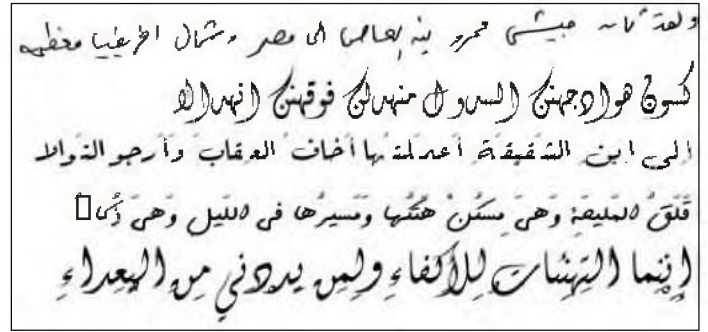 ولقد كان جيش عمرو بن العاص الى مصر وشمال افريقيا معظمه
كسون هوادجهن السدول منهدلن فوقهن انهدالا
إلى ابن الشقيقة أعملتها أخاف العقاب وأرجو النوالا
قَلَقُ المَليحَةِ وَهيَ مِسكٌ هَتكُها وَمَسيرُها في اللَيلِ وَهيَ ذُكاء
إِنَّما التَهنِئاتُ لِلأَكفاءِ وَلِمَن يَدَّني مِنَ البُعَداءِ